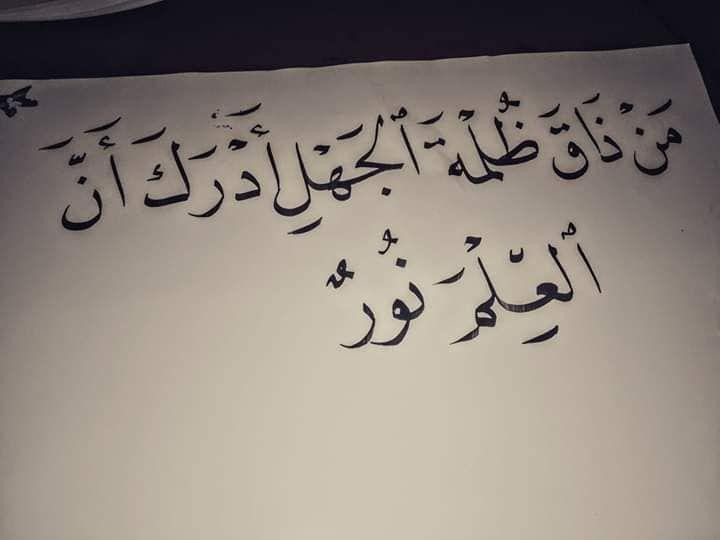 مَنْ ذَاقَ ظُلْمَةَ ٱلجَهْلِ أَدْرَكَ أَنَّ
ٱلعِلْمَ نُورٌ